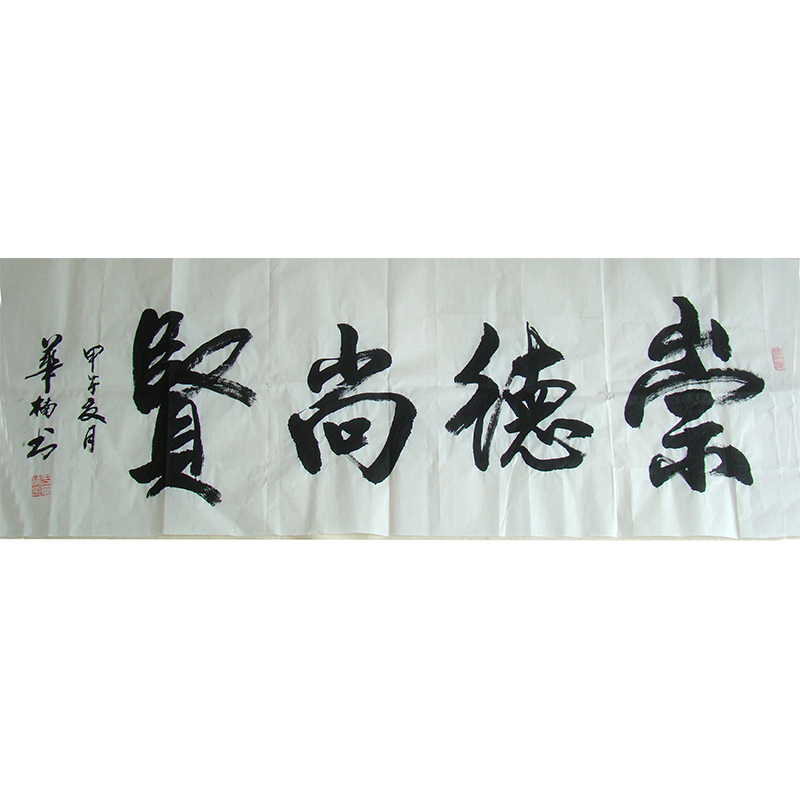 崇德尚賢
甲午夏月
華楠书